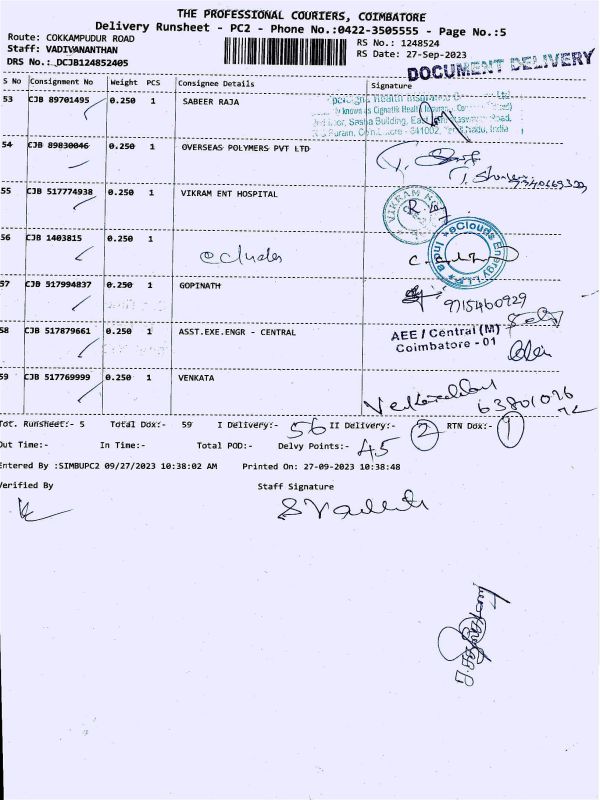 THE PROFESSIONAL COURIERS, COIMBATORE
Delivery Runsheet - PC2 - Phone No.:0422-3505555 - Page No.:5
Route: COKKAMPUDUR ROAD
RS No.: 1248524
Staff: VADIVANANTHAN
RS Date: 27-Sep-2023
DRS No.: DCJB124852405
DOCUMENT DELIVERY
S No Consignment No Weight PCS Consignee Details Signature
53 CJB 89701495 0.250 1 SABEER RAJA
54 CJB 89830046 0.250 1 OVERSEAS POLYMERS PVT LTD
55 CJB 517774938 0.250 1 VIKRAM ENT HOSPITAL
56 CJB 1403815 0.250 1
eClouds Energy
57 CJB 517994837 0.250 1 GOPINATH
9715460929
58 CJB 517879661 0.250 1 ASST.EXE.ENGR - CENTRAL
AEE / Central (M)
Coimbatore - 01
59 CJB 517769999 0.250 1 VENKATA
Tot. Runsheet:- 5 Total Dox:- 59 I Delivery:- 56 II Delivery:- 2 RTN Dox:- 1
Out Time:- In Time:- Total POD:- Delvy Points:- 45
Entered By :SIMBUPC2 09/27/2023 10:38:02 AM Printed On: 27-09-2023 10:38:48
Verified By Staff Signature